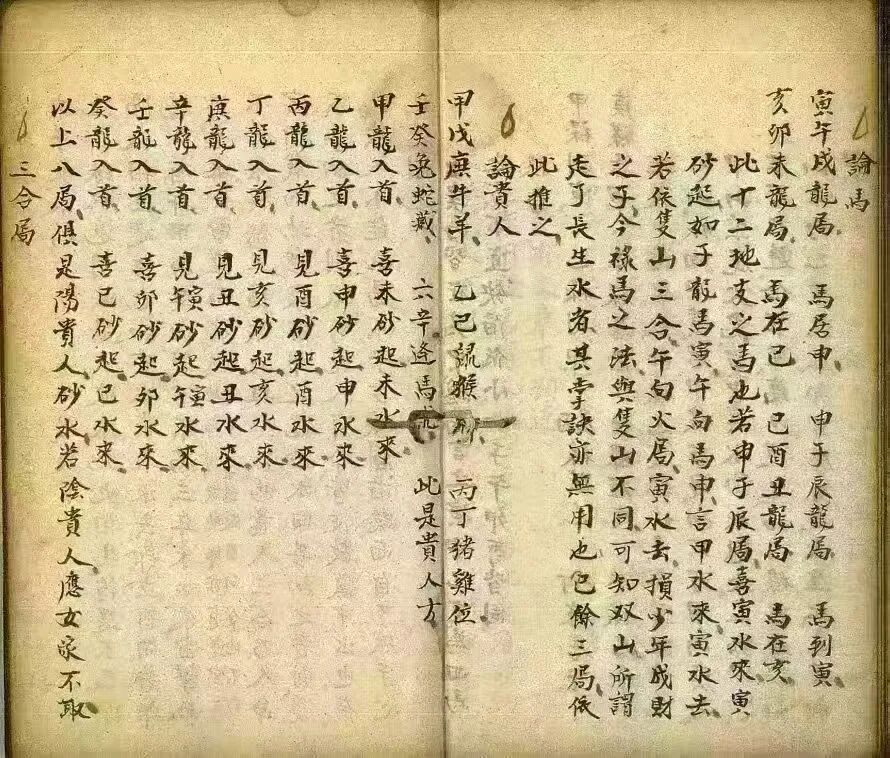 論馬
寅午戌龍局 馬居申 申子辰龍局 馬到寅
亥卯未龍局 馬在巳 巳酉丑龍局 馬在亥
此十二地支之馬也若申子辰局喜寅水來寅
砂起如子龍馬寅午向馬申言甲水來寅水去
若依隻山三合午向火局寅水去損少年成財
之子今祿馬之法與隻山不同可知双山所謂
走了長生水者其字訣亦無用也已餘三局依
此推之
論貴人
甲戊庚牛羊 乙己鼠猴 丙丁猪雞位
壬癸兔蛇藏 六辛逢馬虎 此是貴人方
甲龍入首 喜未砂起未水來
乙龍入首 喜申砂起申水來
丙龍入首 見酉砂起酉水來
丁龍入首 見亥砂起亥水來
庚龍入首 見丑砂起丑水來
辛龍入首 見寅午砂起寅午水來
壬龍入首 喜卯砂起卯水來
癸龍入首 喜巳砂起巳水來
以上八局俱是陽貴人砂水若陰貴人應女家不取
三合局